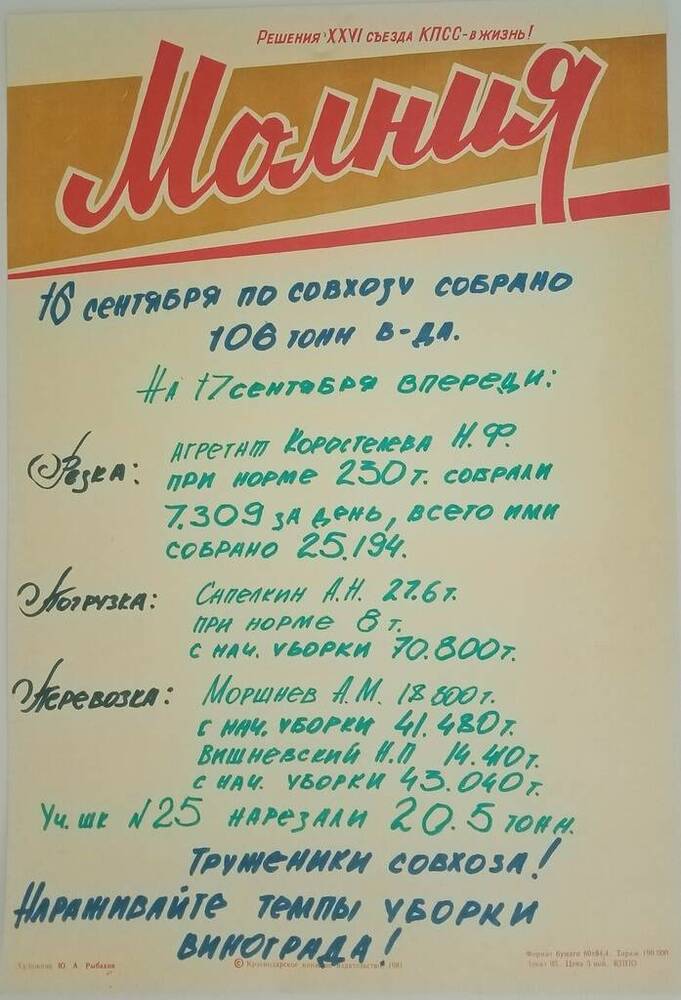 Решения XXVI съезда КПСС - в жизнь!
Молния
16 сентября по совхозу собрано
106 тонн в-да.
На 17 сентября впереди:
Резка: агрегат Коростелева Н.Ф.
при норме 230 т. собрали
7.309 за день, всего ими
собрано 25.194.
Погрузка: Сапелкин А.Н. 27.6 т.
при норме 8 т.
с нач. уборки 70.800 т.
Перевозка: Моршнев А.М. 18 800 т.
с нач. уборки 41.480 т.
Вишневский Н.П 14.410 т.
с нач. уборки 43.040 т.
Уч. шк N25 нарезали 20.5 тонн.
Труженики совхоза!
Нараживайте темпы уборки
винограда!
Художник Ю. А. Рыбаков
© Краснодарское издательство, 1981
Формат бумаги 60х84,4. Тираж 190 000
Заказ 05. Цена 3 коп. КППО